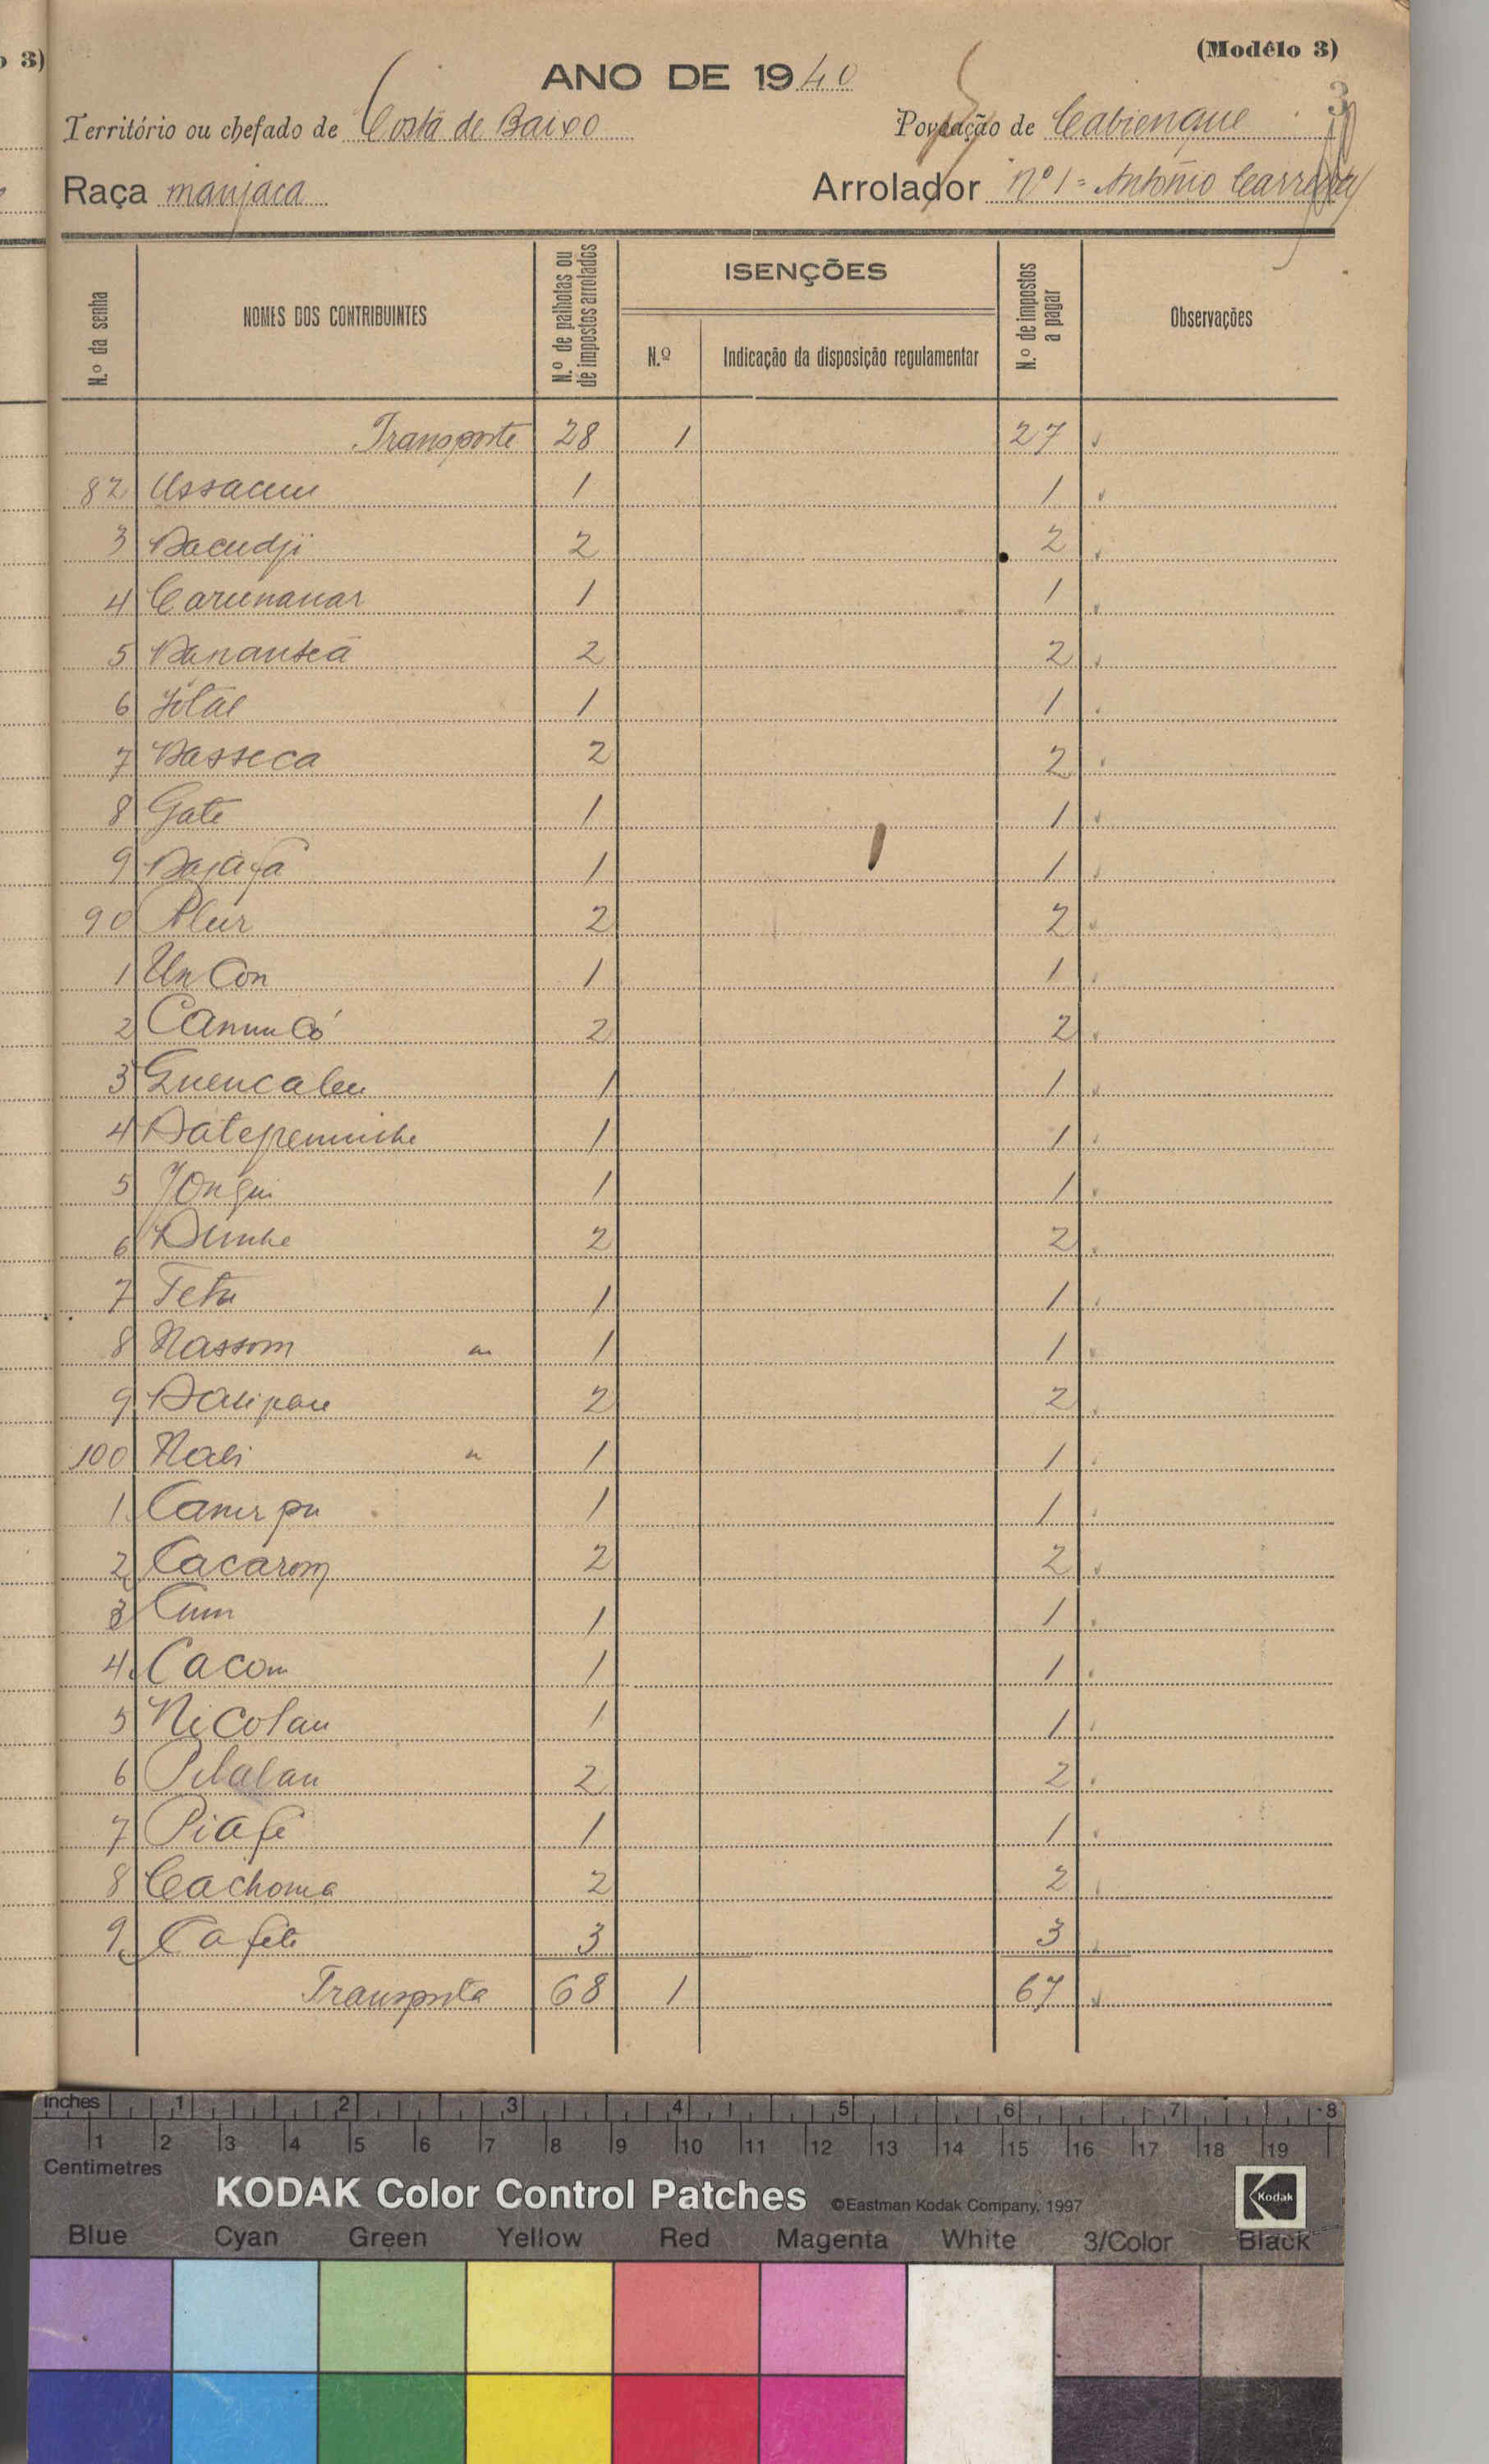 o 3)
(Modêlo 3)
ANO DE 1940
3
Território ou chefado de Costa de Baixo
Povoação de Cabienque
Raça manjaca
Arrolador nº 1 = António Carreira
N.º da senha
NOMES DOS CONTRIBUINTES
N.º de palhotas ou de impostos arrolados
ISENÇÕES
N.º
Indicação da disposição regulamentar
N.º de impostos a pagar
Observações
Transporte 28 1 27
82 Ussacum 1 1
3 Dacudji 2 2
4 Carunanar 1 1
5 2 2
6 1 1
7 Dasseca 2 2
8 Gate 1 1
9 1 1
90 2 2
1 Un Con 1 1
2 Canuncó 2 2
3 Guencaleu 1 1
4 1 1
5 Jongui 1 1
6 Dunhe 2 2
7 Tetu 1 1
8 Nassom 1 1
9 2 2
100 Nali 1 1
1 1 1
2 Cacarom 2 2
3 Cum 1 1
4 Cacom 1 1
5 Nicolau 1 1
6 2 2
7 Piafe 1 1
8 Cachoma 2 2
9 Cafete 3 3
Transporte 68 1 67
Inches 1 2 3 4 5 6 7 8
1 2 3 4 5 6 7 8 9 10 11 12 13 14 15 16 17 18 19
Centimetres
KODAK Color Control Patches ©Eastman Kodak Company, 1997 Kodak
Blue Cyan Green Yellow Red Magenta White 3/Color Black